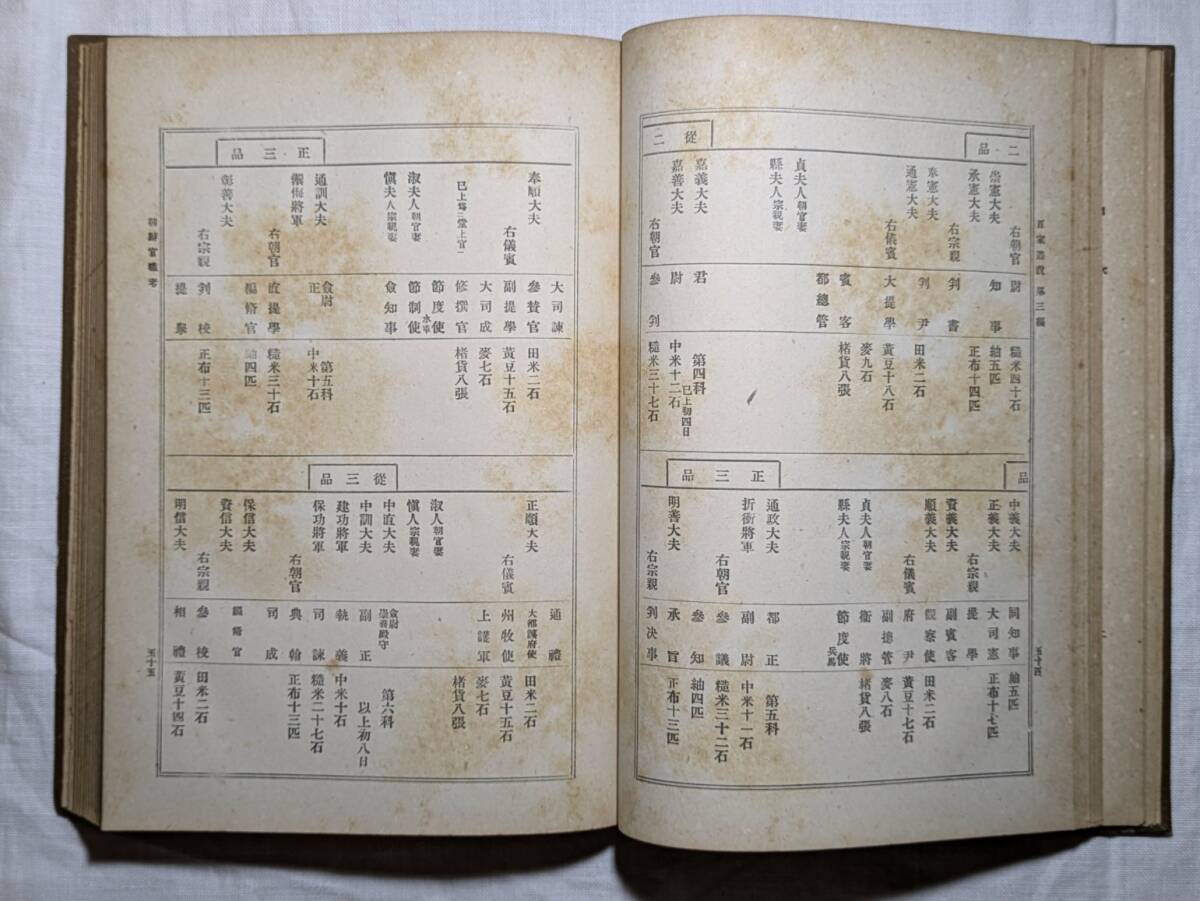 第三編
五十四
二品
右朝官
崇憲大夫
承憲大夫
右宗親
奉憲大夫
通憲大夫
右儀賓
貞夫人朝官妻
縣夫人宗親妻
從二
嘉義大夫
嘉善大夫
右朝官
尉
知事
判書
判尹
大提學
賓客
都總管
君
尉
參判
糙米四十石
紬五匹
正布十四匹
田米二石
黃豆十八石
麥九石
楮貨八張
第四科
已上初四日
中米十二石
糙米三十七石
品
中義大夫
正義大夫
右宗親
資義大夫
順義大夫
右儀賓
貞夫人朝官妻
縣夫人宗親妻
正三品
通政大夫
折衝將軍
右朝官
明善大夫
右宗親
同知事
大司憲
提學
副賓客
觀察使
府尹
副摠管
衞將
節度使兵馬
都正
副尉
參議
參知
承旨
判決事
紬五匹
正布十七匹
田米二石
黃豆十七石
麥八石
楮貨八張
第五科
中米十一石
糙米三十二石
紬四匹
正布十三匹
奉順大夫
右儀賓
已上爲三堂上官一
淑夫人朝官妻
愼夫人宗親妻
正三品
通訓大夫
禦侮將軍
右朝官
彰善大夫
右宗親
大司諫
參贊官
副提學
大司成
修撰官
節度使水軍
節制使
僉知事
僉尉
正
直提學
編修官
判校
提擧
田米二石
黃豆十五石
麥七石
楮貨八張
第五科
中米十石
糙米三十石
紬四匹
正布十三匹
正順大夫
右儀賓
淑人朝官妻
愼人宗親妻
從三品
中直大夫
中訓大夫
建功將軍
保功將軍
右朝官
保信大夫
資信大夫
右宗親
明信大夫
通禮
大都護府使
州牧使
上護軍
僉尉
崇義殿守
副正
執義
司諫
典翰
司成
編修官
參校
相禮
田米二石
黃豆十五石
麥七石
楮貨八張
第六科
以上初八日
中米十石
糙米二十七石
正布十三匹
田米二石
黃豆十四石
朝鮮官職考
五十五